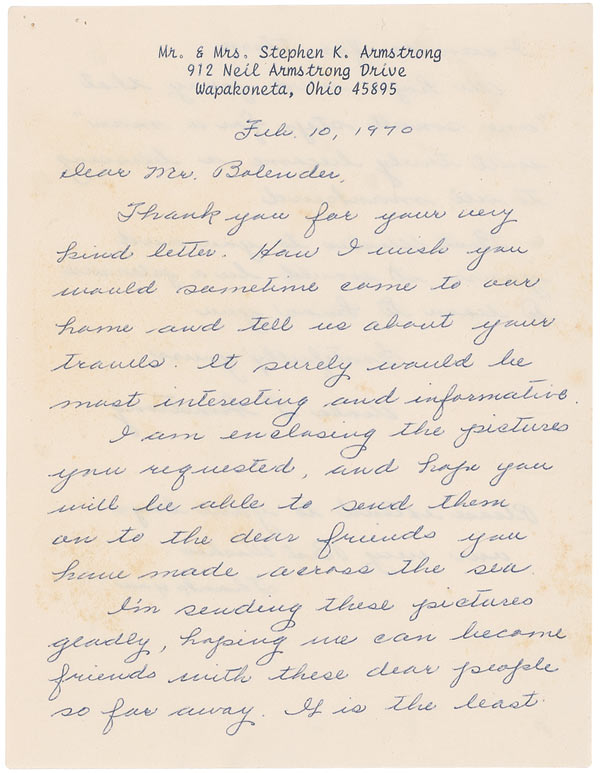 Mr. & Mrs. Stephen K. Armstrong
912 Neil Armstrong Drive
Wapakoneta, Ohio 45895
Feb. 10, 1970
Dear Mr. Bolender,
Thank you for your very
kind letter. How I wish you
would sometime come to our
home and tell us about your
travels. It surely would be
most interesting and informative.
I am enclosing the pictures
you requested, and hope you
will be able to send them
on to the dear friends you
have made across the sea.
I'm sending these pictures
gladly, hoping we can become
friends with these dear people
so far away. It is the least